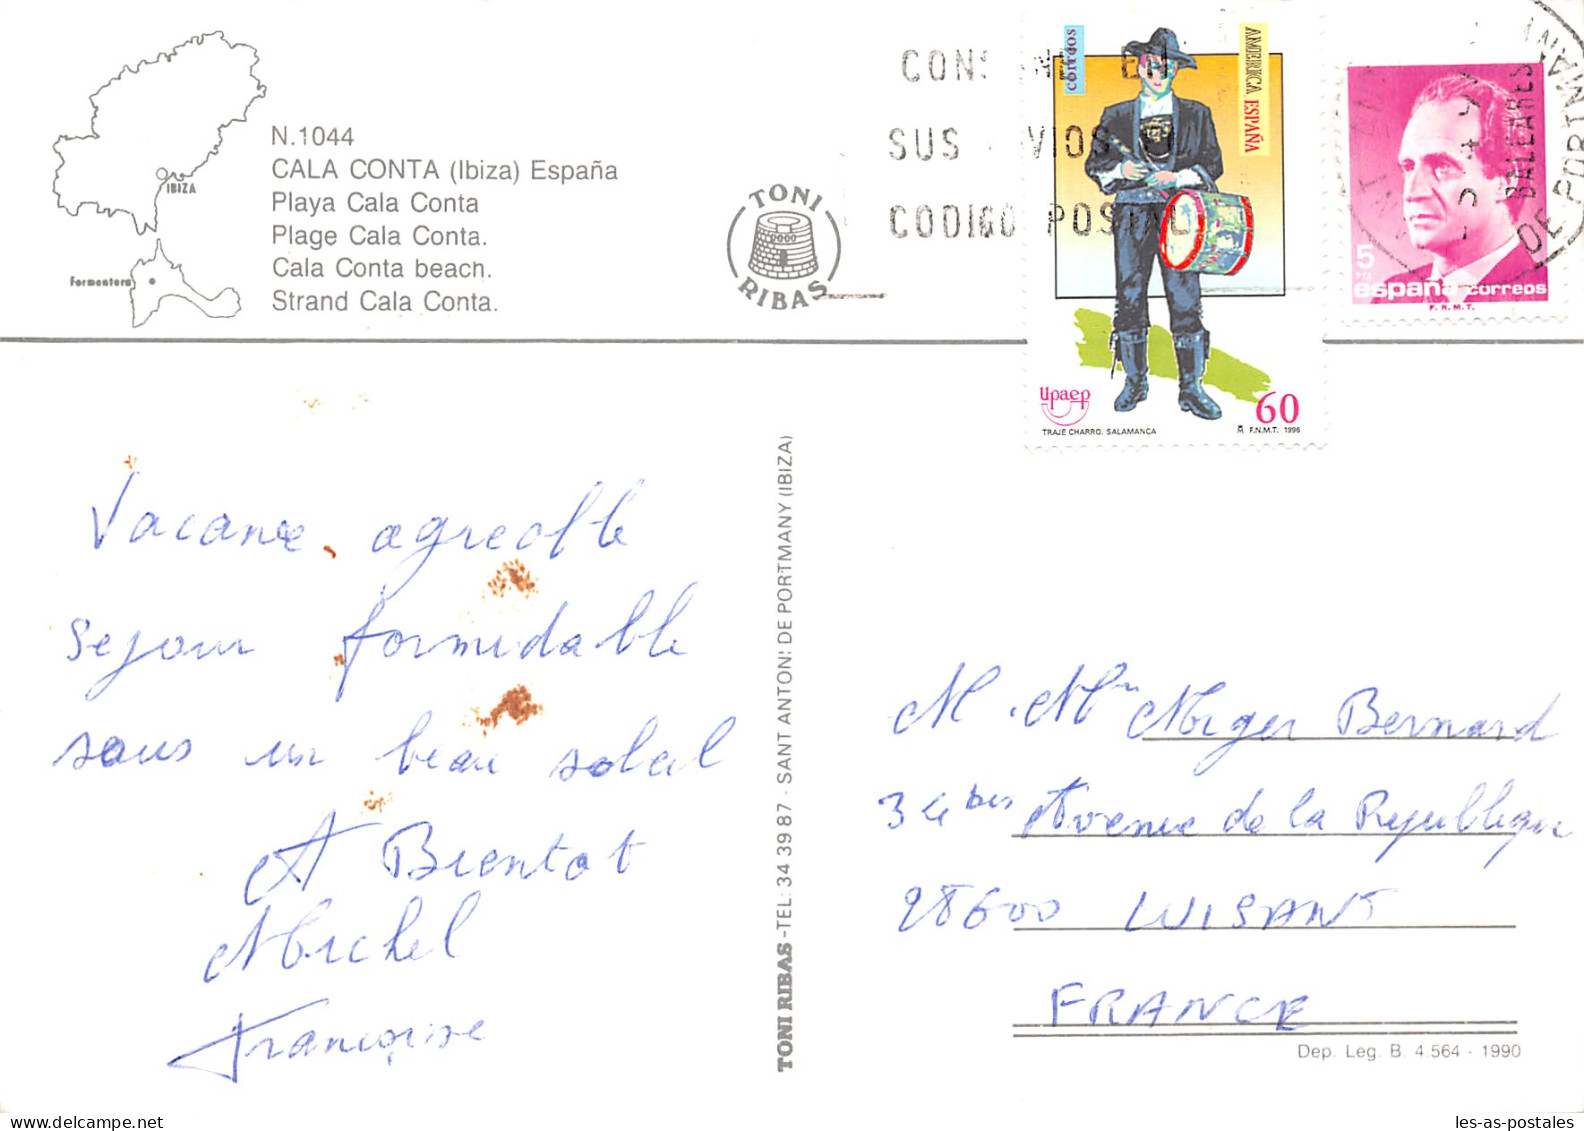 IBIZA
Formentera
N.1044
CALA CONTA (Ibiza) España
Playa Cala Conta
Plage Cala Conta.
Cala Conta beach.
Strand Cala Conta.
TONI
RIBAS
EN
SUS
CODIGO POSTAL
correos
AMERICA ESPAÑA
upaep
60
TRAJE CHARRO. SALAMANCA
F.N.M.T. 1996
BALEARES
DE PORTMANY
5
PTA
españa correos
F.N.M.T.
Vacance agreable
sejour formidable
sous un beau soleil
A Bientot
Michel
Françoise
TONI RIBAS -TEL: 34 39 87 - SANT ANTONI DE PORTMANY (IBIZA)
M. Mme Bernard
34 bis Avenue de la Republique
28600 LUISANT
FRANCE
Dep. Leg. B. 4.564 - 1990
les-as-postales